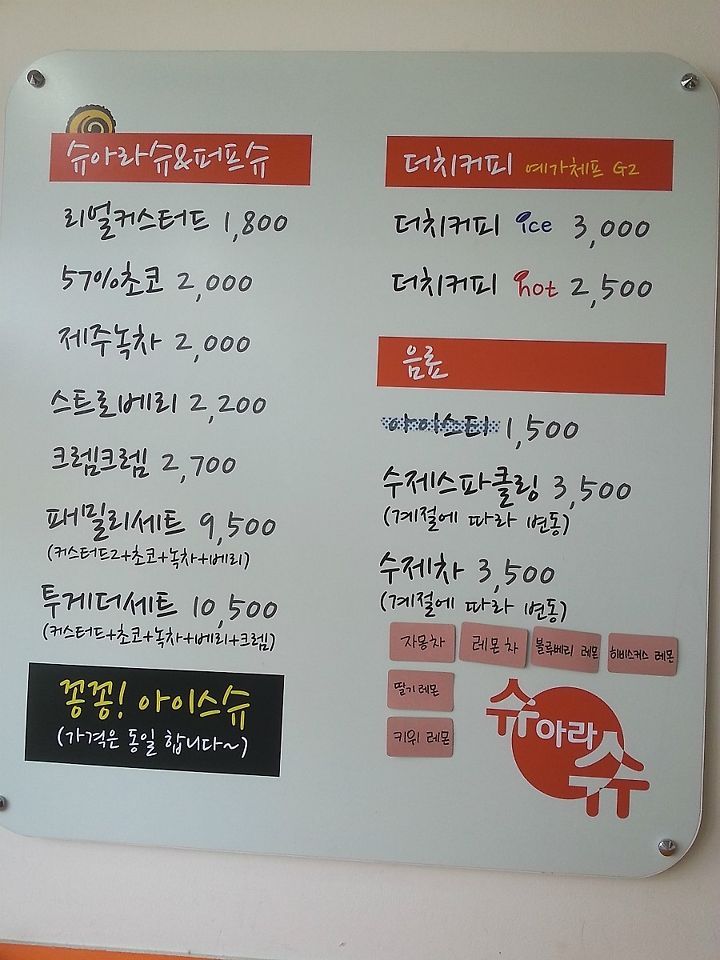 슈아라슈&퍼프슈
리얼커스터드 1,800
57%초코 2,000
제주녹차 2,000
스트로베리 2,200
크렘크렘 2,700
패밀리세트 9,500
(커스터드2+초코+녹차+베리)
투게더세트 10,500
(커스터드+초코+녹차+베리+크렘)
꽁꽁! 아이스슈
(가격은 동일 합니다~)
더치커피 예가체프 G2
더치커피 ice 3,000
더치커피 hot 2,500
음료
아이스티 1,500
수제스파클링 3,500
(계절에 따라 변동)
수제차 3,500
(계절에 따라 변동)
자몽차 레몬차 블루베리 레몬 히비스커스 레몬
딸기레몬
키위 레몬
슈아라슈